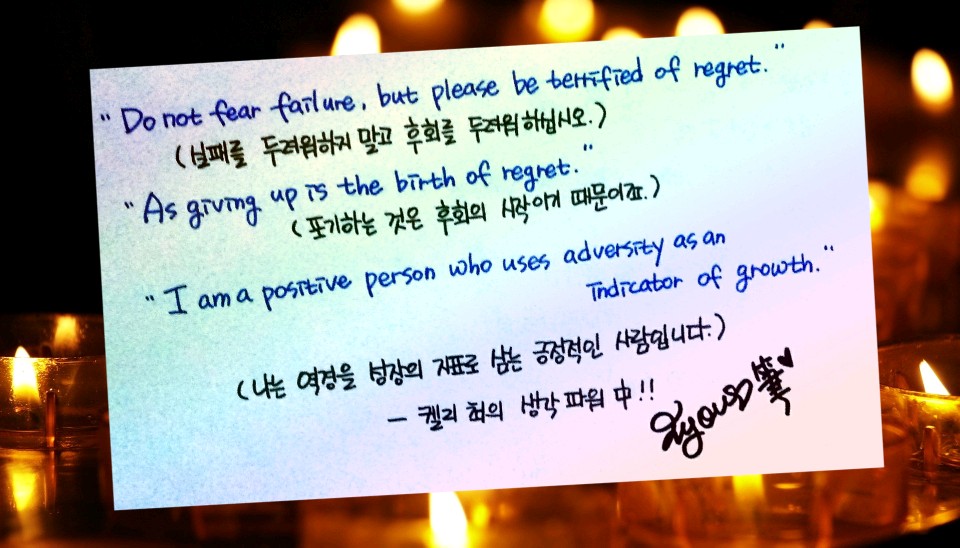 "Do not fear failure, but please be terrified of regret."
(실패를 두려워하지 말고 후회를 두려워 하십시오.)
"As giving up is the birth of regret."
(포기하는 것은 후회의 시작이기 때문이죠.)
"I am a positive person who uses adversity as an
indicator of growth."
(나는 역경을 성장의 지표로 삼는 긍정적인 사람입니다.)
- 켈리 최의 생각 파워 中!!